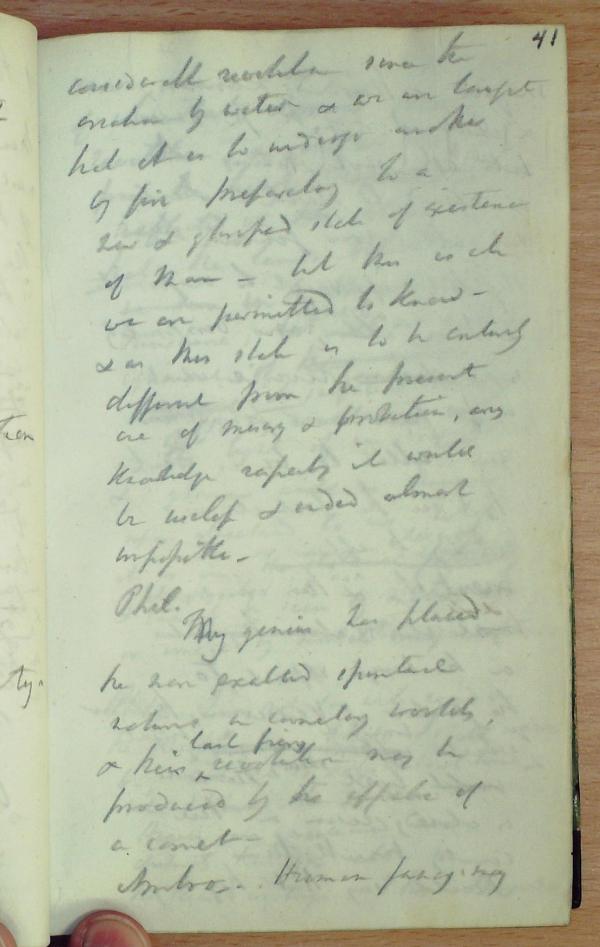 41
considerable revolution since the
creation by water & we are taught
that it is to undergo another
by fire preparatory to a
new & glorified state of existence
of Man – but this is all
we are permitted to know –
& as this state is to be entirely
different from the present
one of misery & probation, any
knowledge respecting it would
be useless & indeed almost
impossible –
Phil.
My genius has placed
the more exalted spiritual
natures in cometary worlds,
& this last fiery revolution may be
produced by the appulse of
a comet –
Ambros. . Human fancy may
ty.